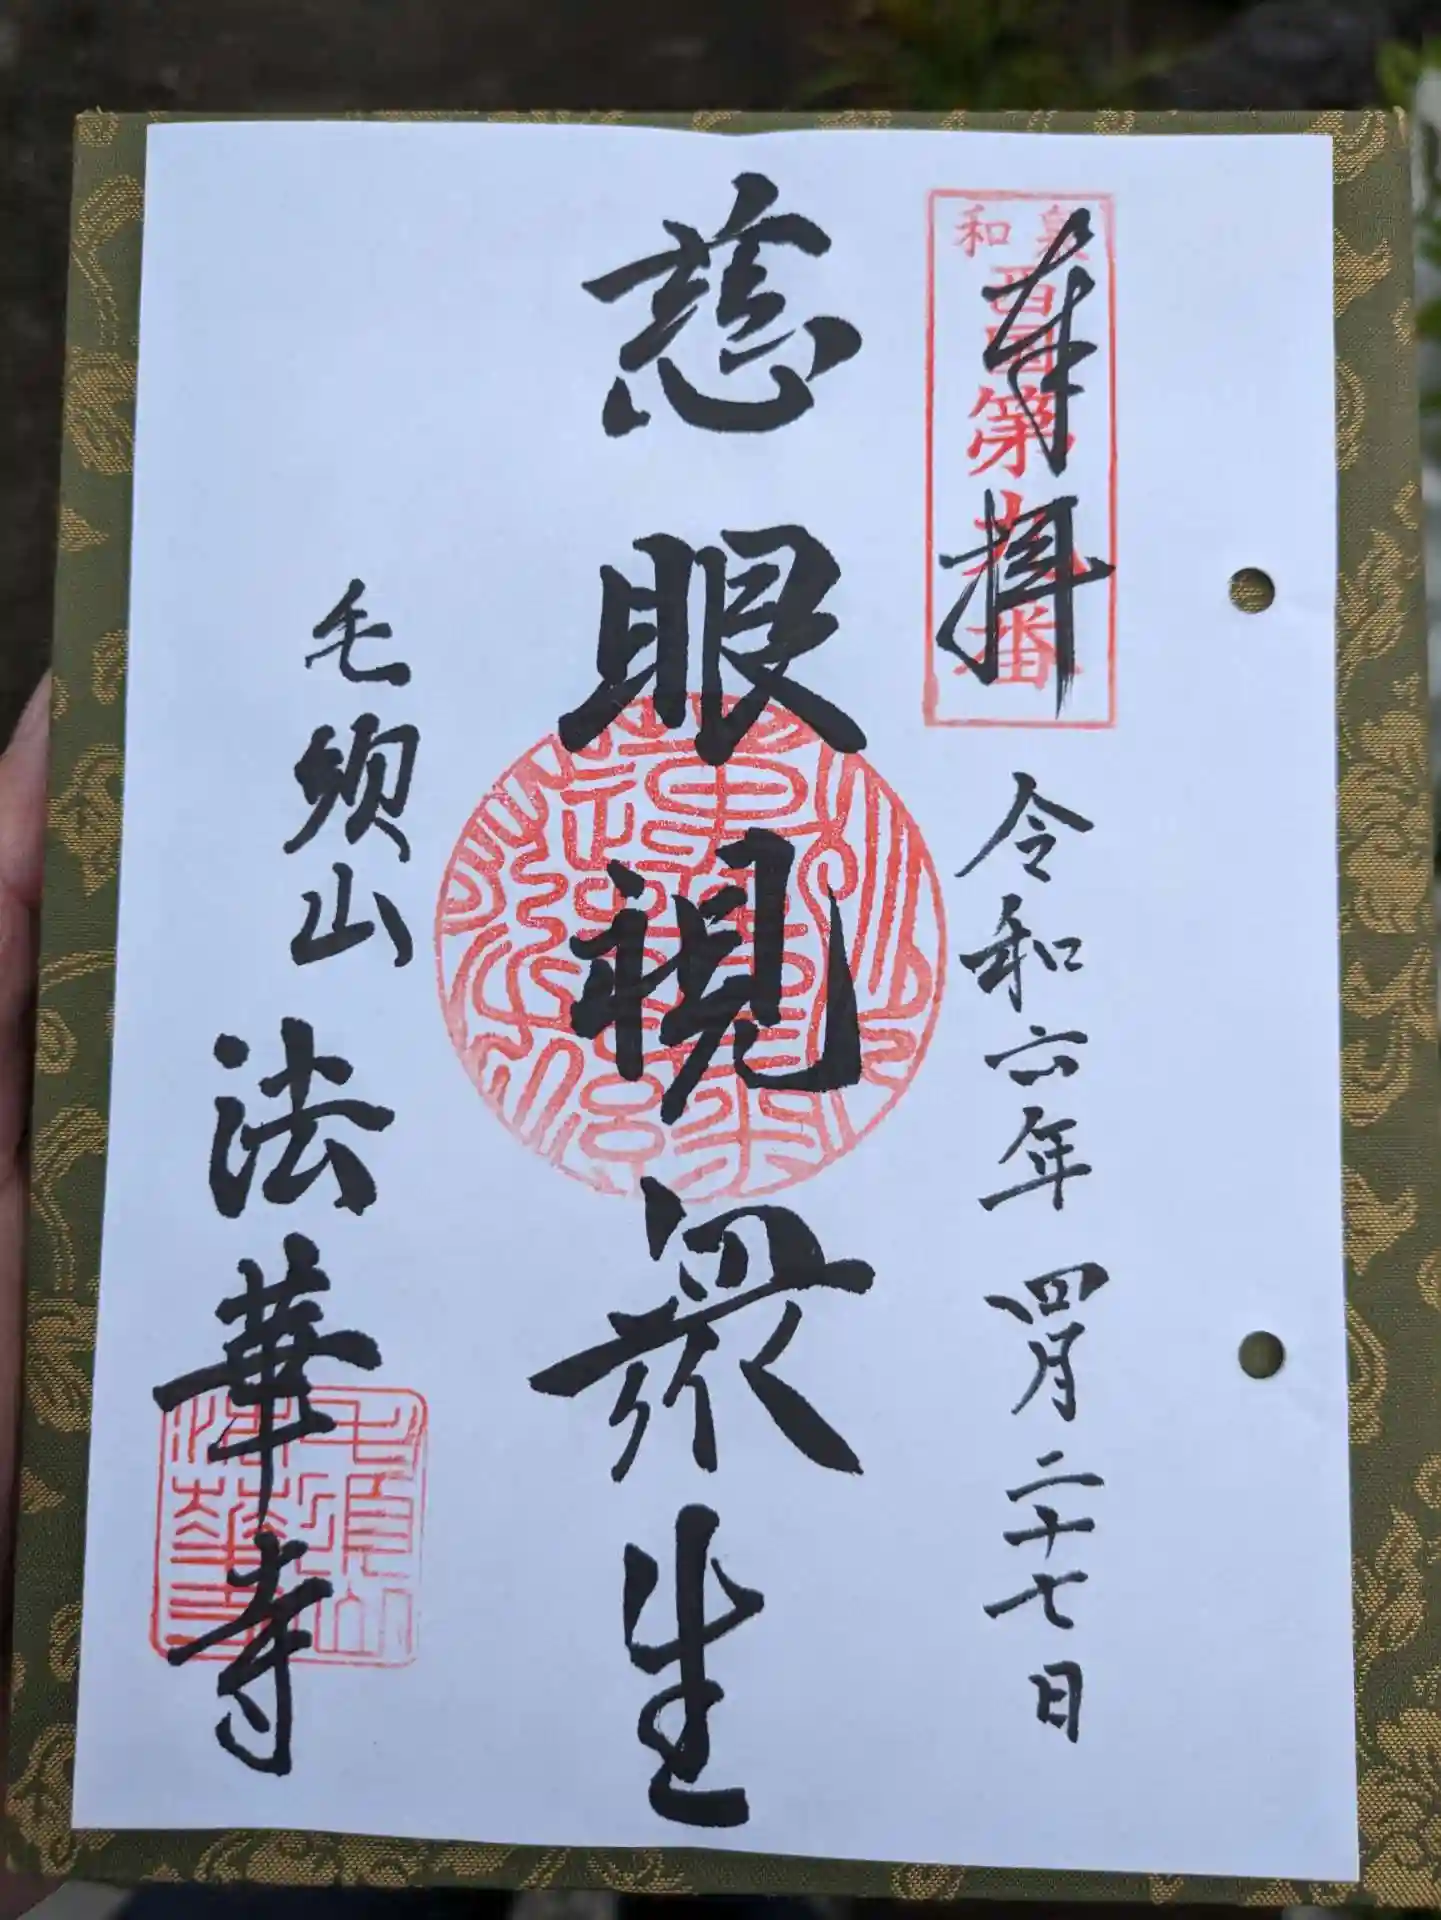 奉拝
和泉西国第九番
令和六年四月二十七日
慈眼視衆生
毛須山
法華寺